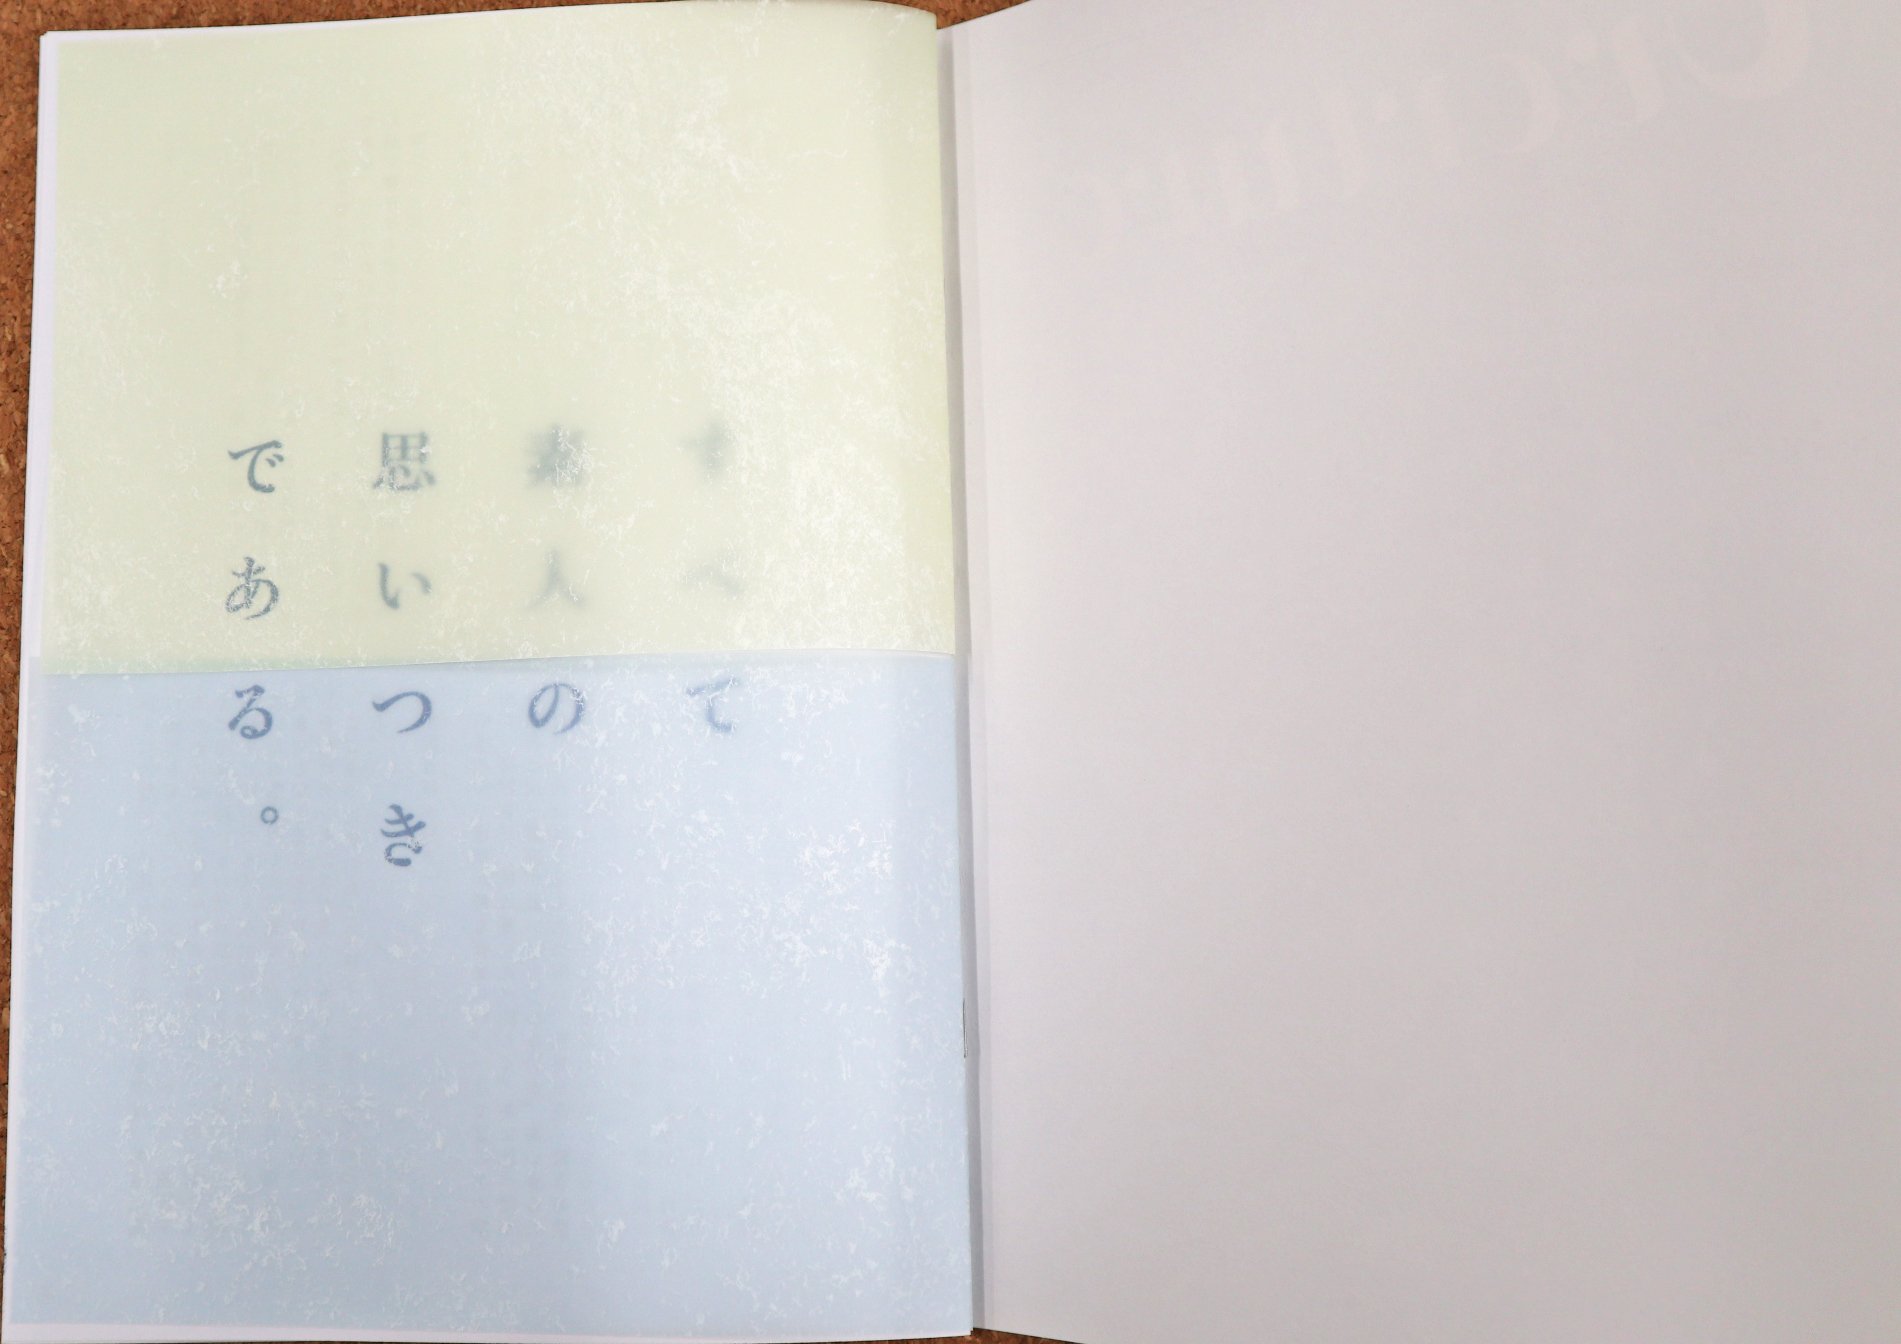 すべて
素人の
思いつき
である。